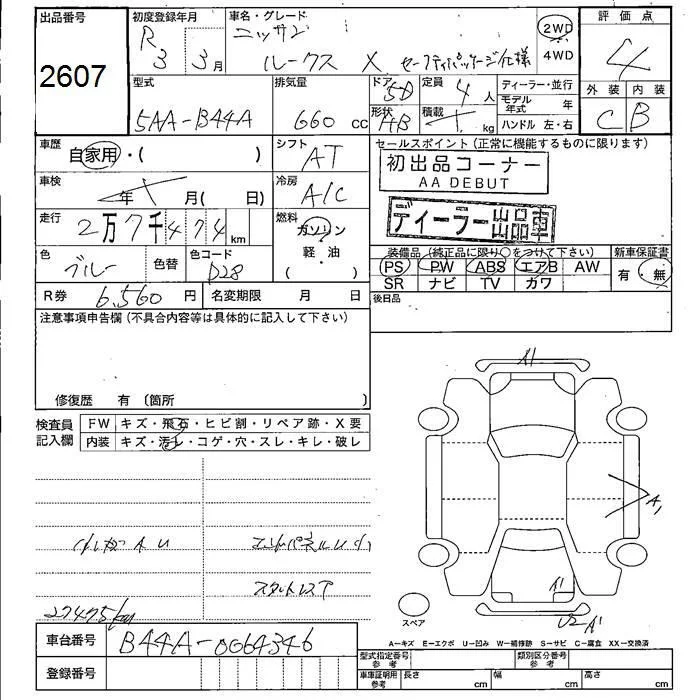 出品番号
2607
初度登録年月
R3 3月
車名・グレード
ニッサン
ルークス X セーフティパッケージ仕様
2WD
4WD
評価点
4
外装 内装
C B
型式
5AA-B44A
排気量
660 cc
ドア 5D
形状 HB
定員 4人
積載 kg
ディーラー・並行
モデル年式 年
ハンドル 左・右
車歴
自家用・( )
シフト
AT
セールスポイント(正常に機能するものに限ります)
初出品コーナー
AA DEBUT
ディーラー出品車
車検
年 月( 日)
冷房
A/C
走行
2万7千474 km
燃料
ガソリン
軽・油
( )
色
ブルー
色替
色コード
D28
装備品(純正品に限り○をつけて下さい)
PS PW ABS エアB AW
SR ナビ TV カワ
新車保証書
有 無
R券 6,560円
名変期限 月 日
後日品
注意事項申告欄(不具合内容等は具体的に記入して下さい)
修復歴 有 〔箇所 〕
検査員記入欄
FW キズ・飛石・ヒビ割・リペア跡・X要
内装 キズ・汚レ・コゲ・穴・スレ・キレ・破レ
A1
A1
A1
U2 A1
スペア
27475km
A-キズ E-エクボ U-凹み W-補修跡 S-サビ C-腐食 XX-交換済
車台番号
B44A-0064346
登録番号
型式指定番号 参考
類別区分番号 参考
車庫証明用 参考
長さ cm 幅 cm 高さ cm